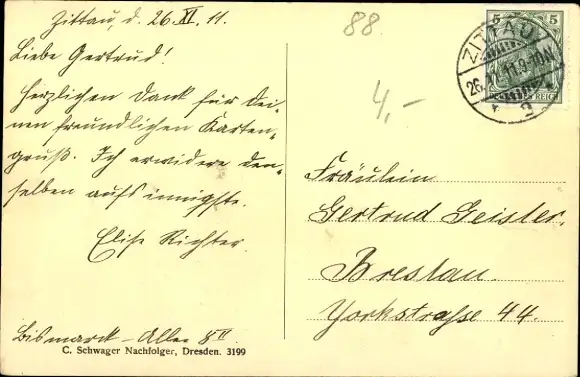 Zittau, d. 26.XI.11.
Liebe Gertrud!
Herzlichen Dank für Dei-
nen freundlichen Karten-
gruß. Ich erwidere den-
selben aufs innigste.
Elise Richter.
Bismarck-Allee 8 II
C. Schwager Nachfolger, Dresden. 3199
88.
4,-
5 5
ZITTAU
26.11.11.9-10V.
* 2
REICH
Fräulein
Gertrud Geisler.
Breslau.
Yorkstraße 44.